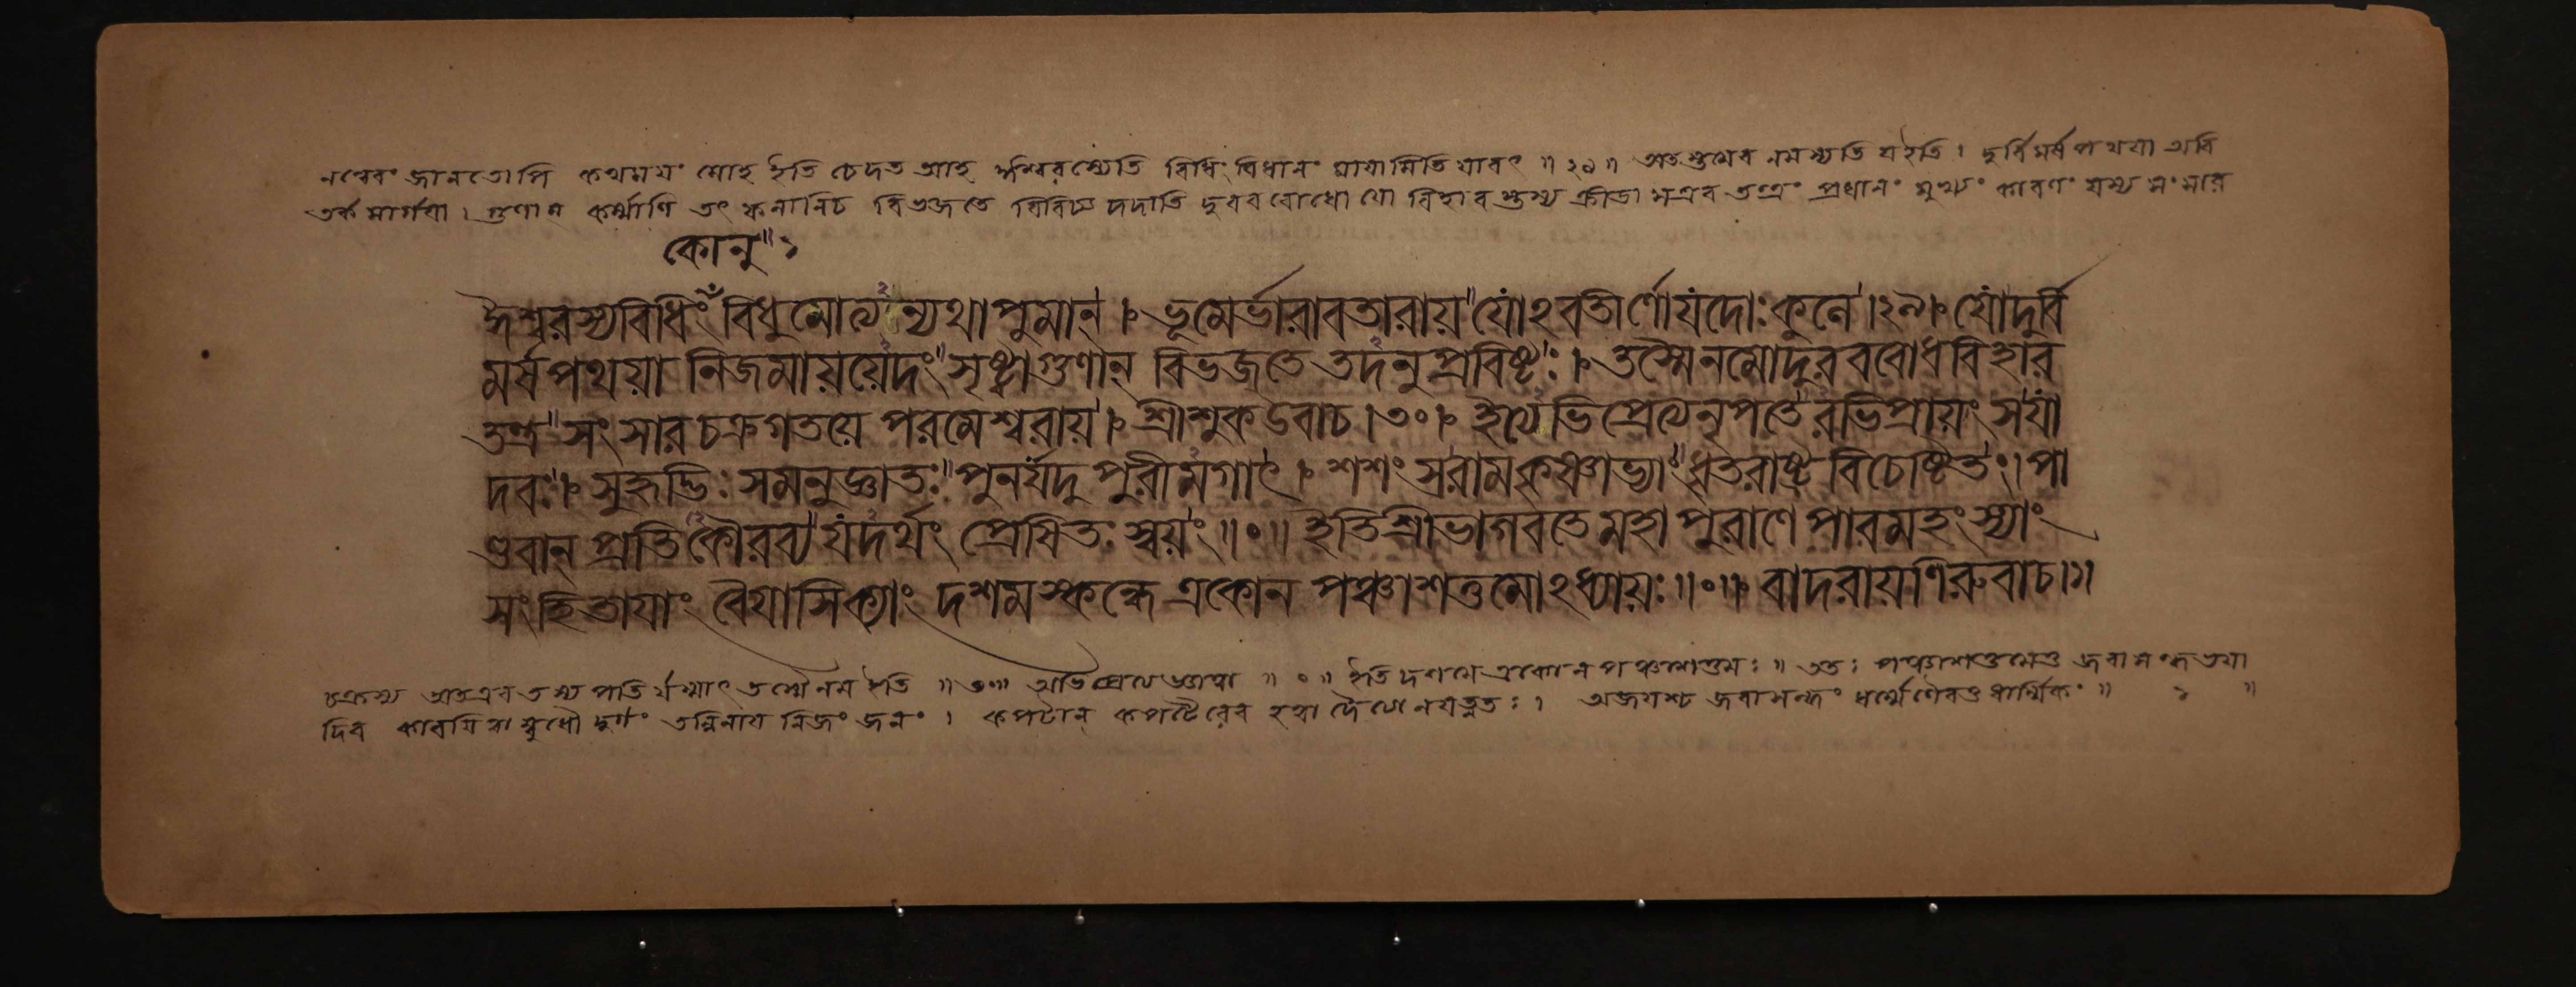 নন্বেবং জানতোপি কথময়ং মোহ ইতি চেদত আহ ঈশ্বরস্যেতি বিধিং বিধানং মায়ামিতি যাবৎ ॥ ২৯ ॥ অতস্তমেব নমস্যতি য ইতি । দুর্বিমর্ষপথয়া অবি
তর্ক মার্গয়া । গুণান কর্ম্মাণি তৎ ফলানিচ বিভজতে বিবিচ্য দদাতি দুরববোধো যো বিহার স্তস্য ক্রীড়া সএব তন্ত্রং প্রধানং মুখ্যং কারণং যস্য সংসার
কোনু" ১
ঈশ্বরস্যবিধিং বিধুনোত্যন্যথাপুমান্ । ভূমের্ভারাবতারায় যোঽবতীর্ণোযদোঃকুলে ।২৯। যোদুর্বি
মর্ষপথয়া নিজমায়য়েদং সৃষ্ট্বাগুণান্ বিভজতে তদনুপ্রবিষ্টঃ । তস্মৈনমোদুরববোধবিহার
তন্ত্র সংসারচক্রগতয়ে পরমেশ্বরায় । শ্রীশুকউবাচ ।৩০। ইত্যভিপ্রেত্যনৃপতেরভিপ্রায়ং সযা
দবঃ । সুহৃদ্ভিঃ সমনুজ্ঞাতঃ পুনর্যদুপুরীমগাৎ । শশংসরামকৃষ্ণাভ্যাং ধৃতরাষ্ট্রবিচেষ্টিতং । পা
ণ্ডবান্ প্রতিকৌরব্য যদর্থং প্রেষিতঃ স্বয়ং ॥০॥ ইতিশ্রীভাগবতে মহাপুরাণে পারমহংস্যাং
সংহিতায়াং বৈয়াসিক্যাং দশমস্কন্ধে একোনপঞ্চাশত্তমোঽধ্যায়ঃ ॥০॥ বাদরায়ণিরুবাচ ॥
চক্রস্য অতএব তস্য গতির্যস্মাৎ তস্মৈ নম ইতি ॥ ৩০॥ অভিপ্রেত্য জ্ঞাত্বা ॥ ০ ॥ ইতি দশমে একোনপঞ্চাশত্তমঃ ॥ ততঃ পঞ্চাশত্তমেতু জরাসন্ধভয়া
দিব কারয়িত্বাম্বুধৌ দুর্গং তন্নিনায় নিজং জনং । কপটান্ কপটৈরেব হত্বা দৈত্যেনযত্নতঃ । অজয়শ্চ জরাসন্ধং ধর্ম্মেণৈবতু ধার্ম্মিকং ॥ ১ ॥